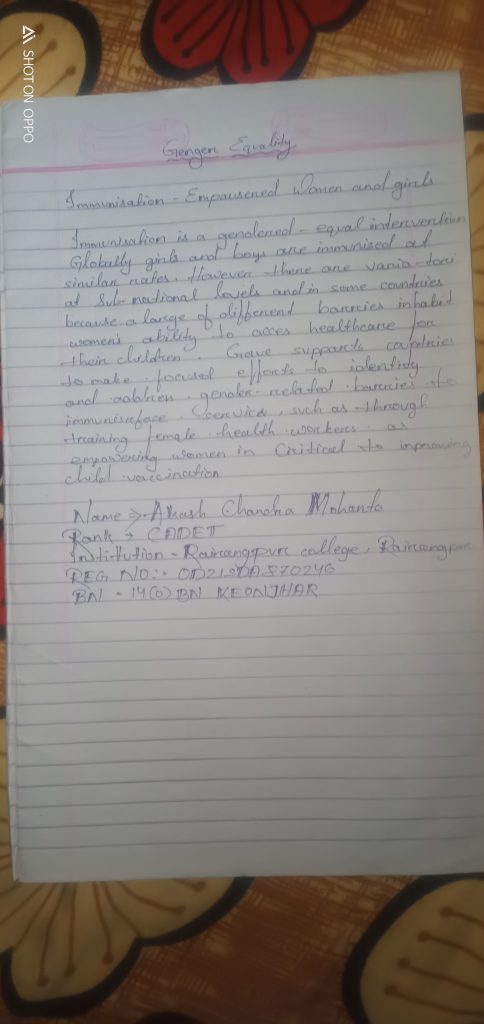 SHOT ON OPPO
Gengen Equality
Immunisation - Empousened Women and girls
Immunisation is a gendened - equal intervention
Globally girls and boys are immunised at
similar rates. However there are varia-tori
at Sub-national levels and in some countries
because a large of different barries inhabit
women's ability to acces healthcare for
their children. Gave supports countries
to make focused efforts to identity
and address gender-related barries to
service, such as through
training female health workers as
empowering women in Critical to improving
child vaccination
Name → Akash Chandra Mohanta
Rank → CADET
Institution - Rairangpur college, Rairangpur
REG NO:- OD21SDA870246
BN - 14(O) BN KEONJHAR